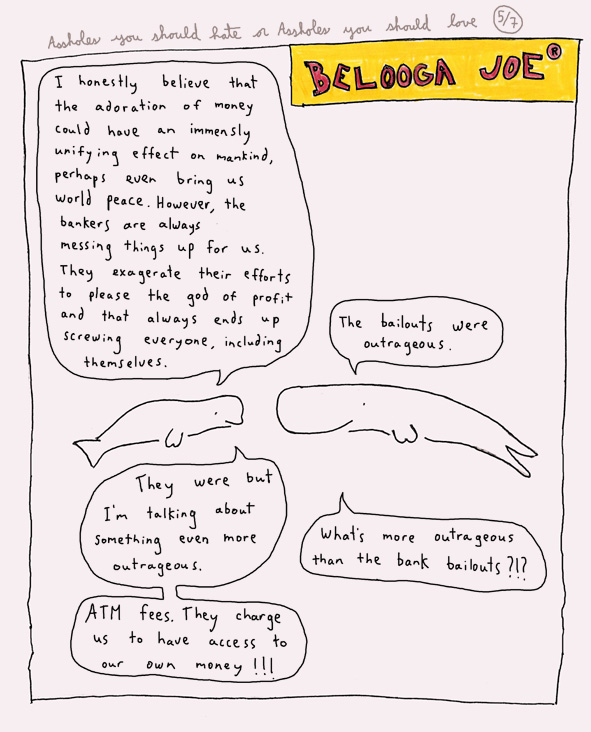 Assholes you should hate or Assholes you should love 5/7
BELOOGA JOE®
I honestly believe that
the adoration of money
could have an immensly
unifying effect on mankind,
perhaps even bring us
world peace. However, the
bankers are always
messing things up for us.
They exagerate their efforts
to please the god of profit
and that always ends up
screwing everyone, including
themselves.
The bailouts were
outrageous.
They were but
I'm talking about
something even more
outrageous.
What's more outrageous
than the bank bailouts?!?
ATM fees. They charge
us to have access to
our own money!!!